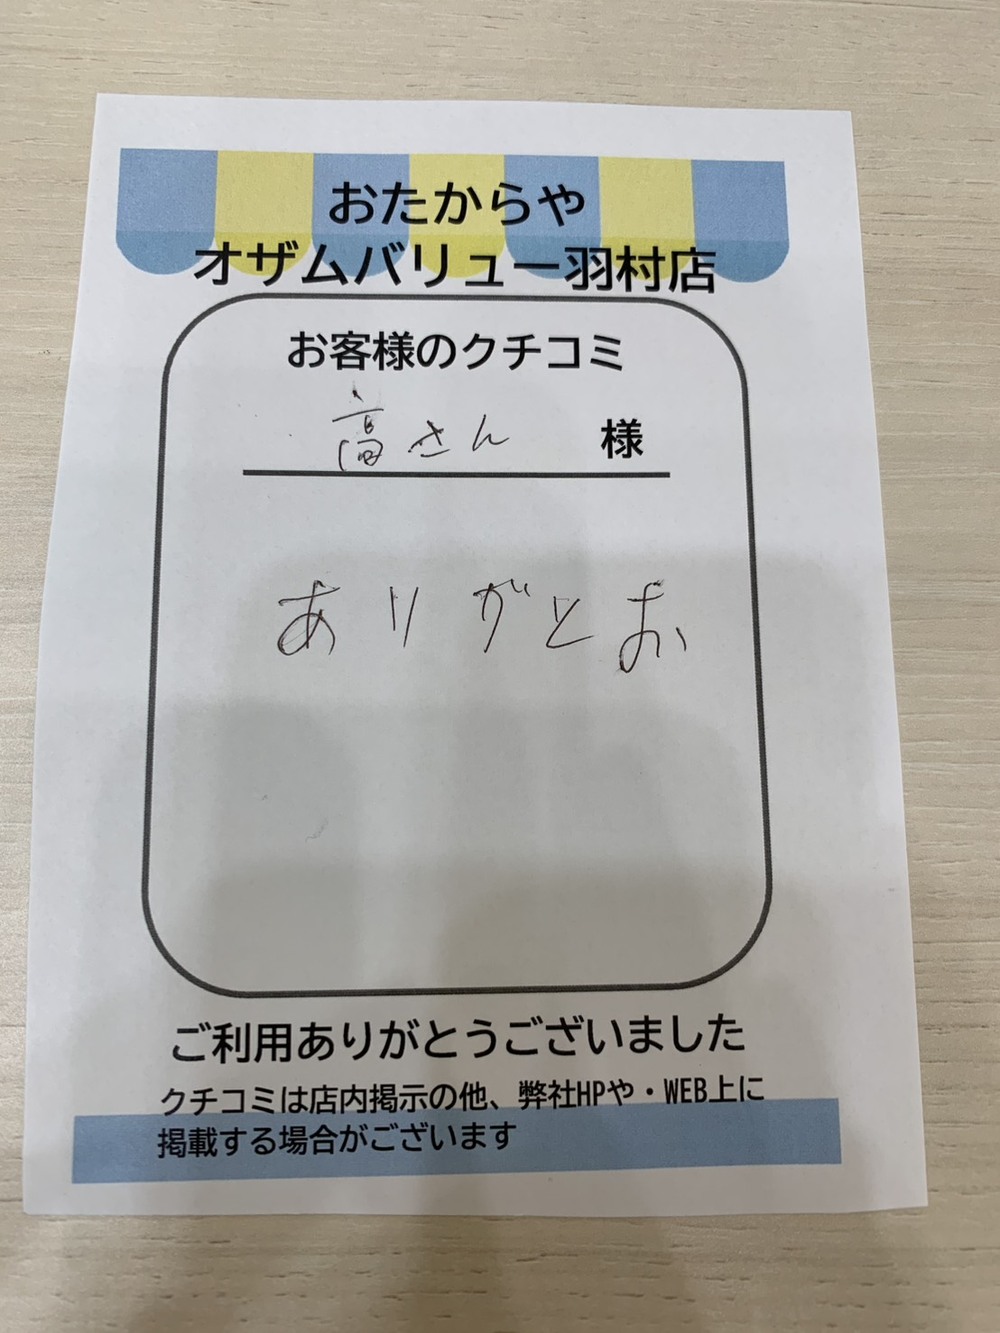 おたからや
オザムバリュー羽村店
お客様のクチコミ
高さん 様
ありがとお
ご利用ありがとうございました
クチコミは店内掲示の他、弊社HPや・WEB上に
掲載する場合がございます